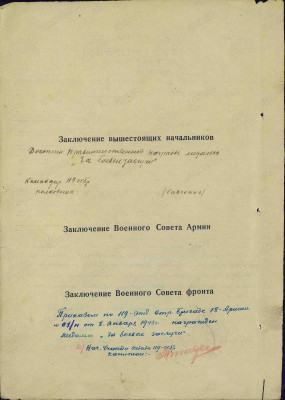 Заключение вышестоящих начальников
Достоин Правительственной награды медалью
"За боевые заслуги"
Командир 119 осбр
полковник
Заключение Военного Совета Армии
Заключение Военного Совета фронта
Приказом по 119 отд. стр. бригаде 18 Армии
от 8 января 1943 г. награжден
медалью "за боевые заслуги"
капитан:-